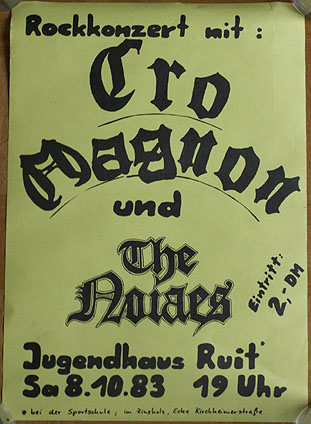 Rockkonzert mit:
Cro
Magnon
und
The
Noiaes
Eintritt:
2,-DM
Jugendhaus Ruit*
Sa 8.10.83 19 Uhr
* bei der Sportschule, im Zinsholz, Ecke Kirchheimerstraße